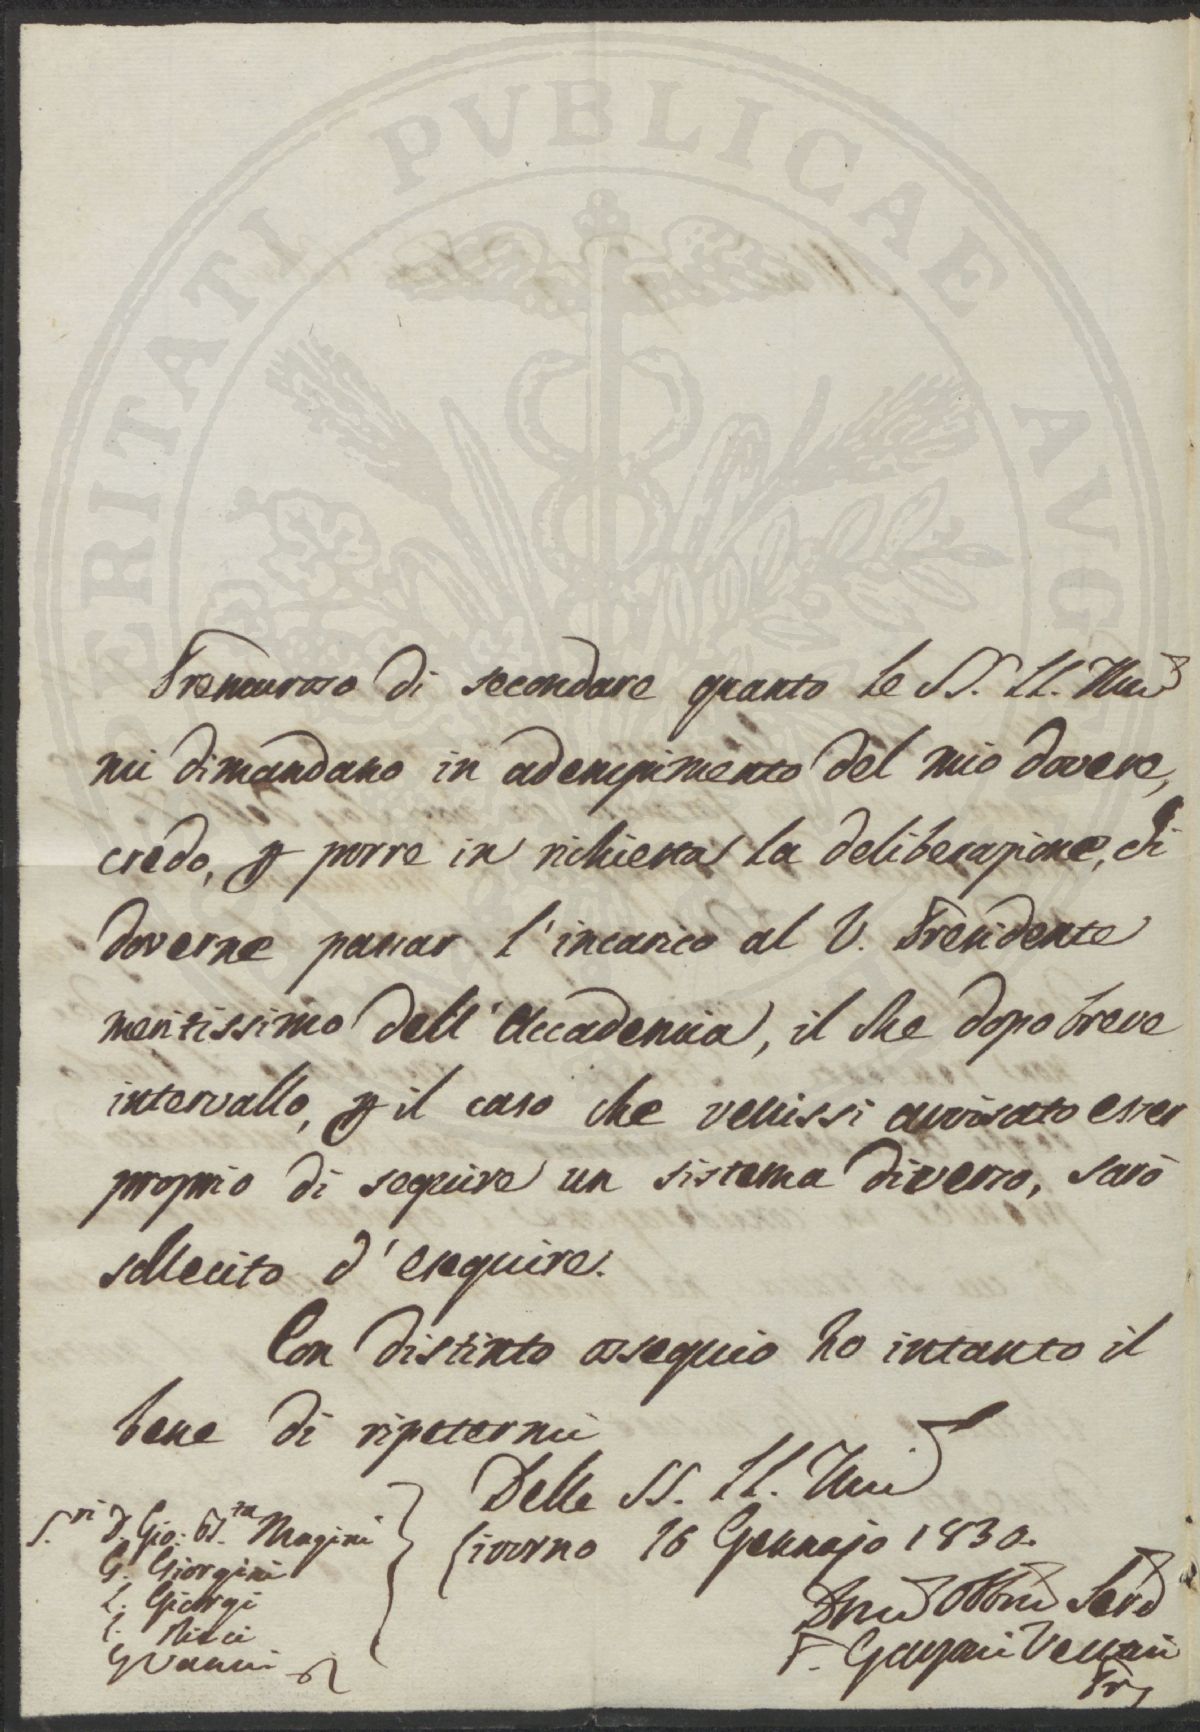 PROSPERITATI PVBLICAE AVG
Premuroso di secondare quanto le SS. LL. Illmē
mi dimandano in adempimento del mio dovere,
credo, p porre in richiesta la deliberazione, di
doverne passar l'incarico al V. Presidente
meritissimo dell'Accademia, il che dopo breve
intervallo, p il caso che venissi avvisato esser
proprio di seguire un sistema diverso, sarò
sollecito d'eseguire.
Con distinto ossequio ho intanto il
bene di ripetermi
Delle SS. LL. Illmē
Livorno 16 Gennajo 1830.
S.ri D. Gio: B.ta Magini
G. Giorgini
L. Giorgi
Ricci
G Vannini
Dmō Obbmō Serē
F. Gaspari Vessari